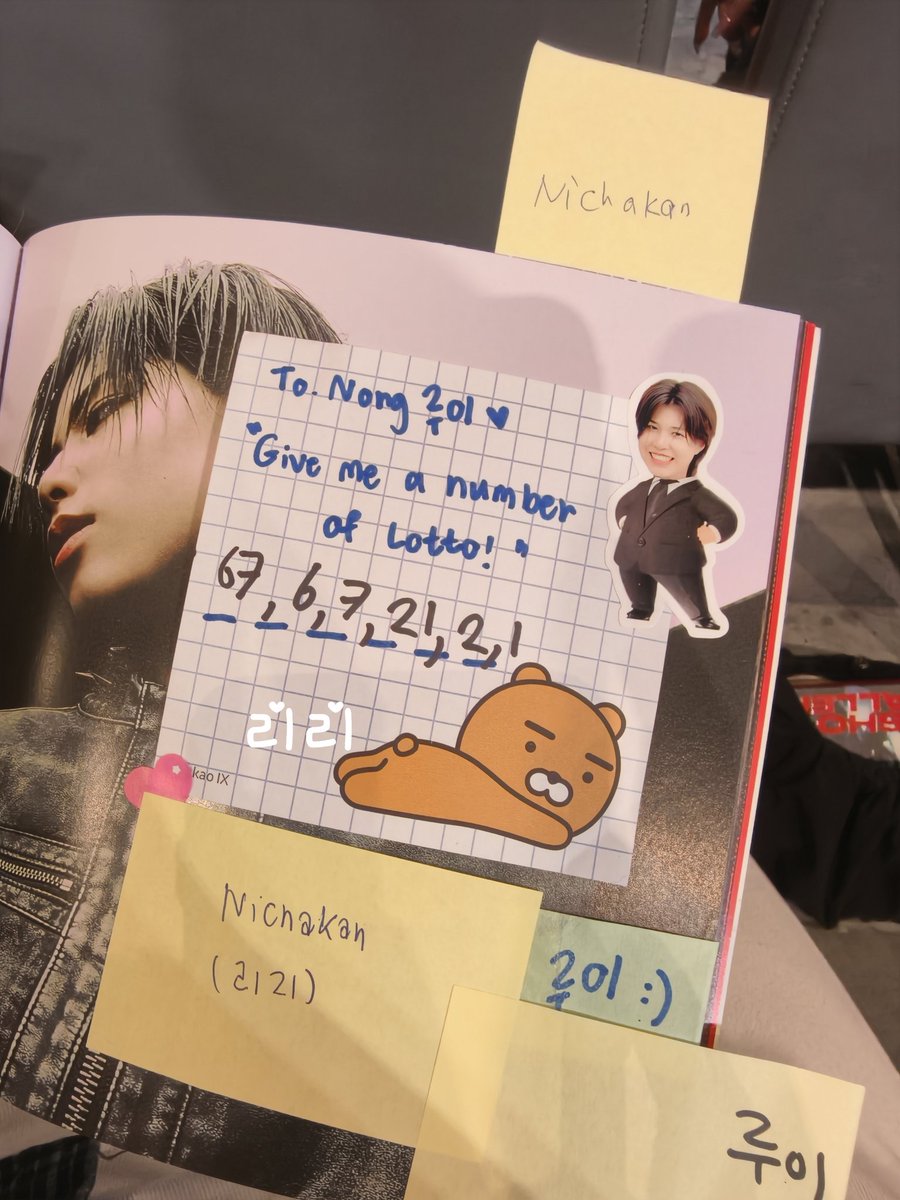 Nichakan
To. Nong 루이 ♥
"Give me a number
of Lotto! "
67, 6, 7, 21, 2, 1
리리
kao IX
Nichakan
(리리)
루이 :)
루이